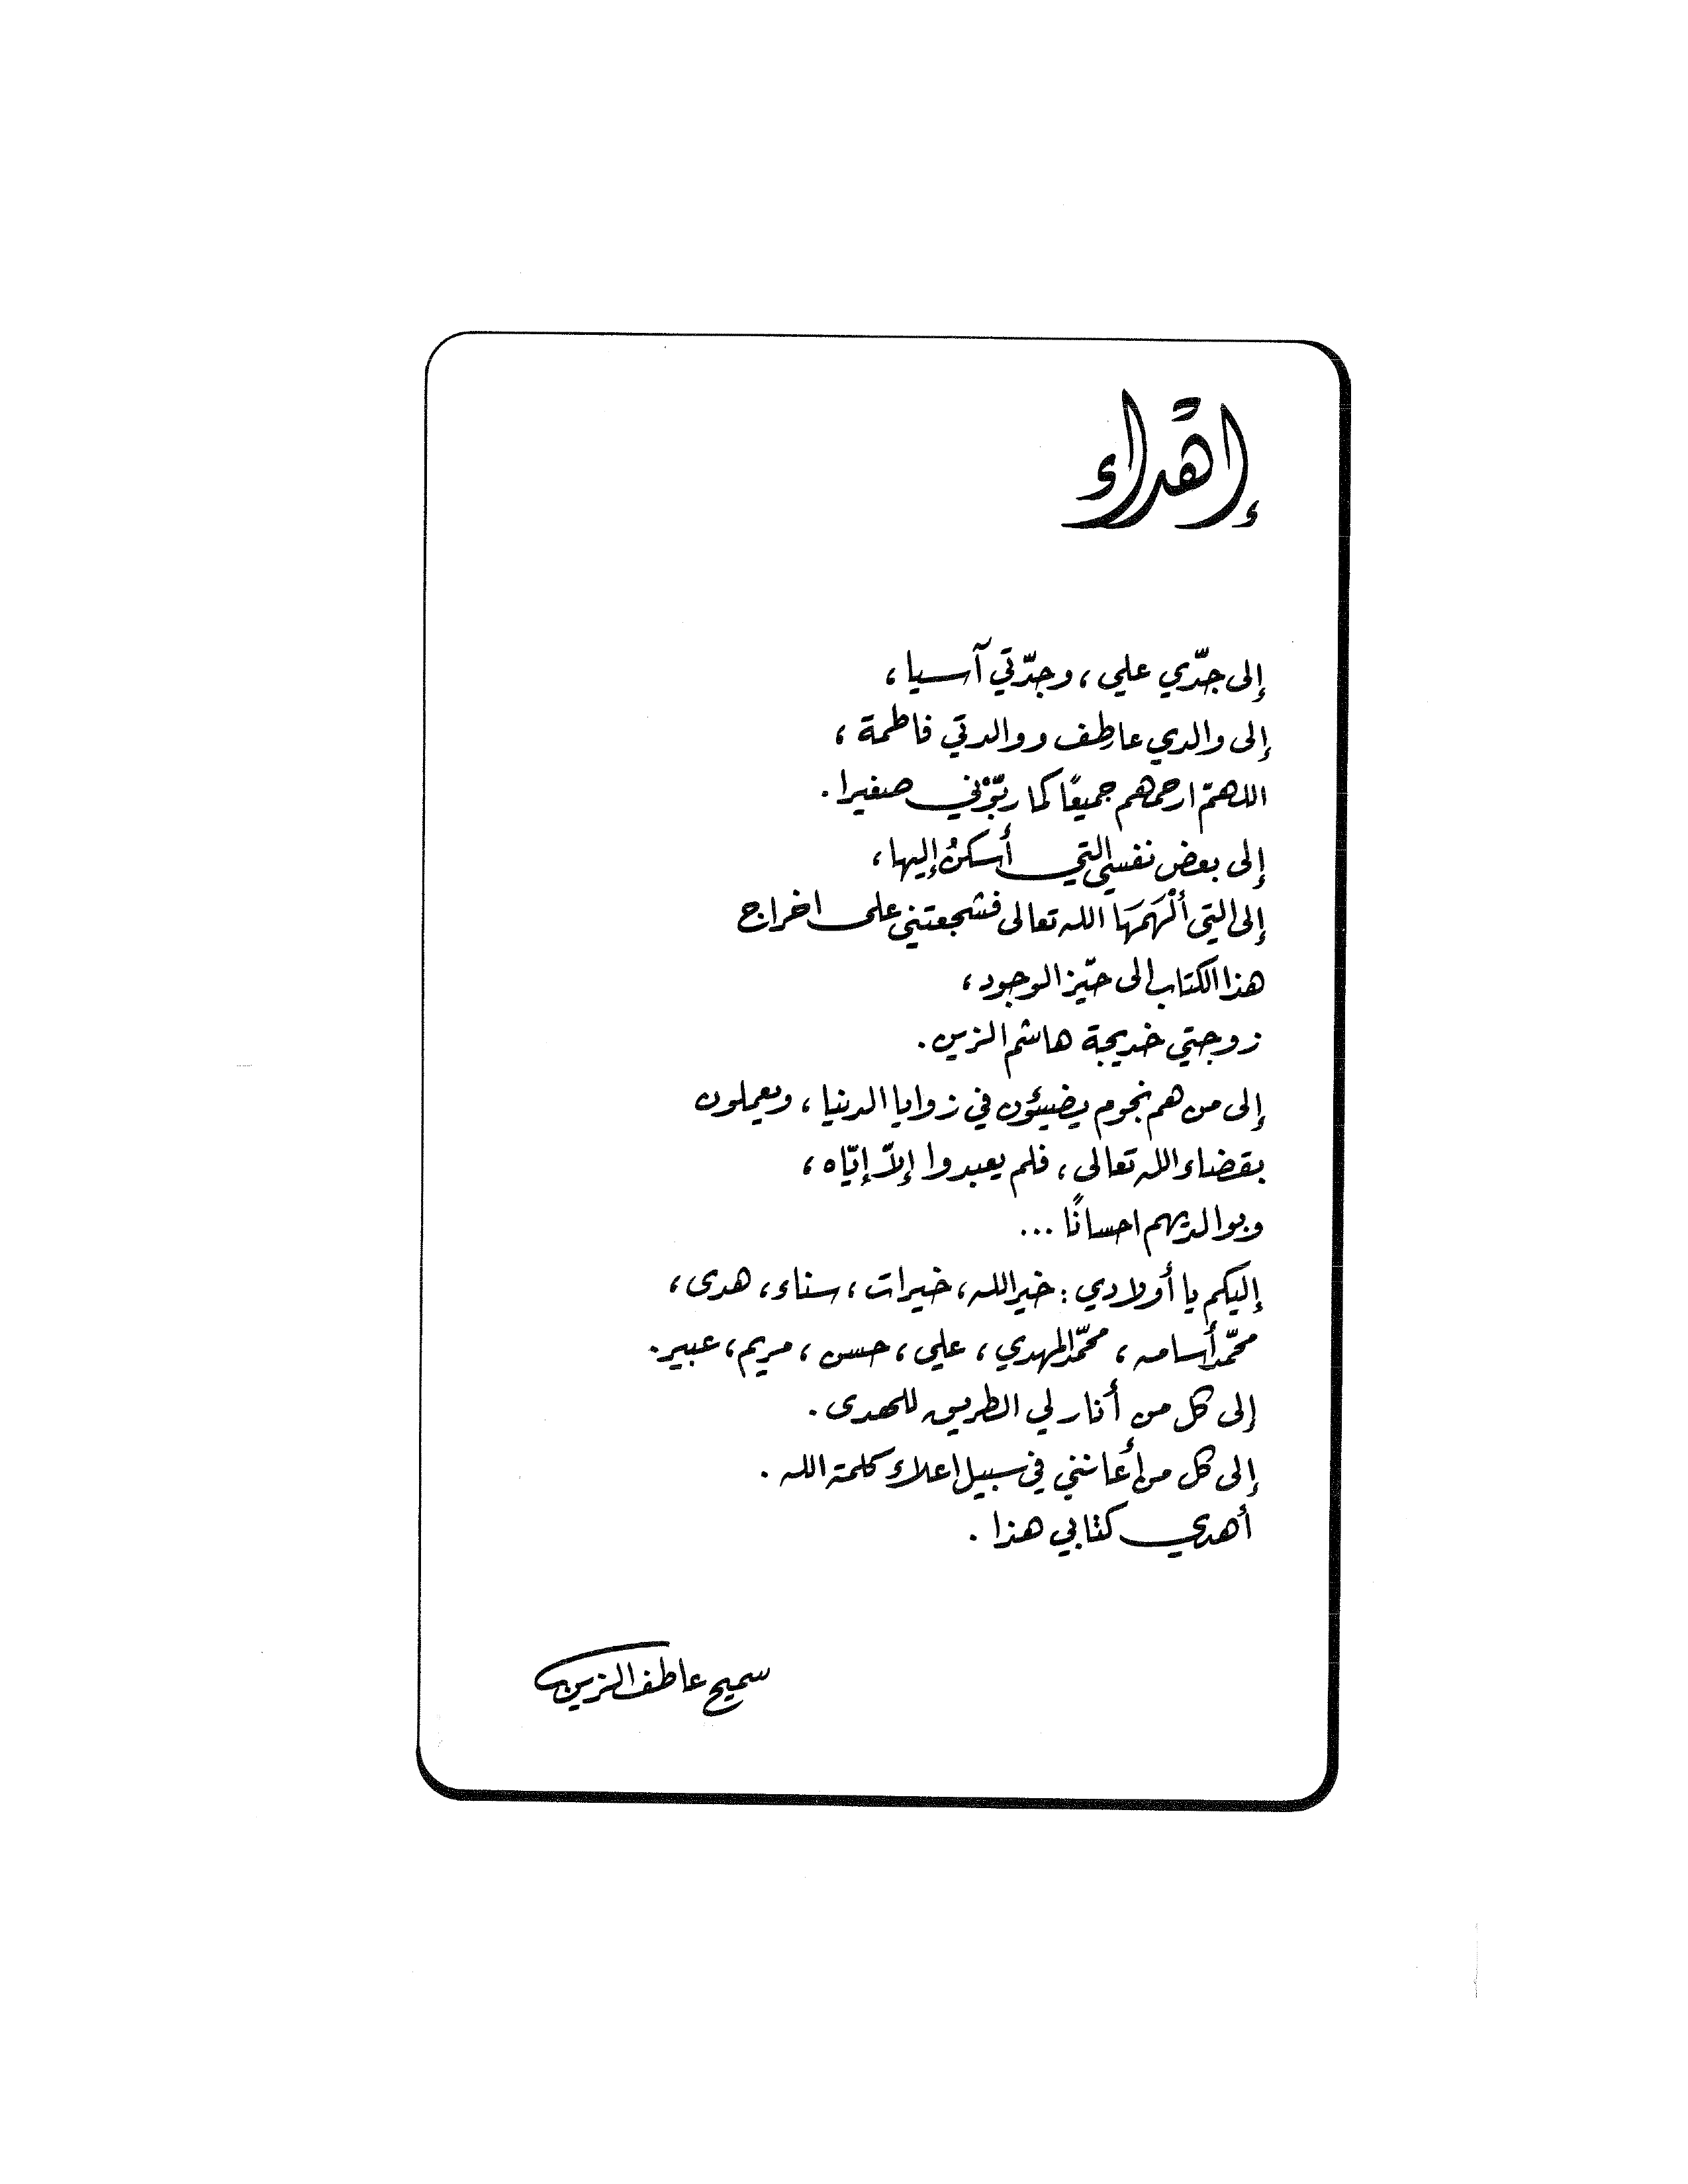 إهداء
إلى جدّي علي، وجدّتي آسيا،
إلى والدي عاطف ووالدتي فاطمة،
اللهمّ ارحمهم جميعًا كما ربّوْني صغيرا.
إلى بعض نفسي التي أسكنُ إليها،
إلى التي ألْهَمَهَا الله تعالى فشجعتني على اخراج
هذا الكتاب الى حيّز الوجود،
زوجتي خديجة هاشم الزين.
إلى من هم نجوم يضيئون في زوايا الدنيا، ويعملون
بقضاء الله تعالى، فلم يعبدوا إلاّ إيّاه،
وبوالديهم احسانًا ...
إليكم يا أولادي: خير الله، خيرات، سناء، هدى،
محمّد أسامه، محمّد المهدي، علي، حسن، مريم، عبير.
إلى كل من أنار لي الطريق للهدى.
إلى كل من أعانني في سبيل اعلاء كلمة الله.
أهدي كتابي هذا.
سميح عاطف الزين